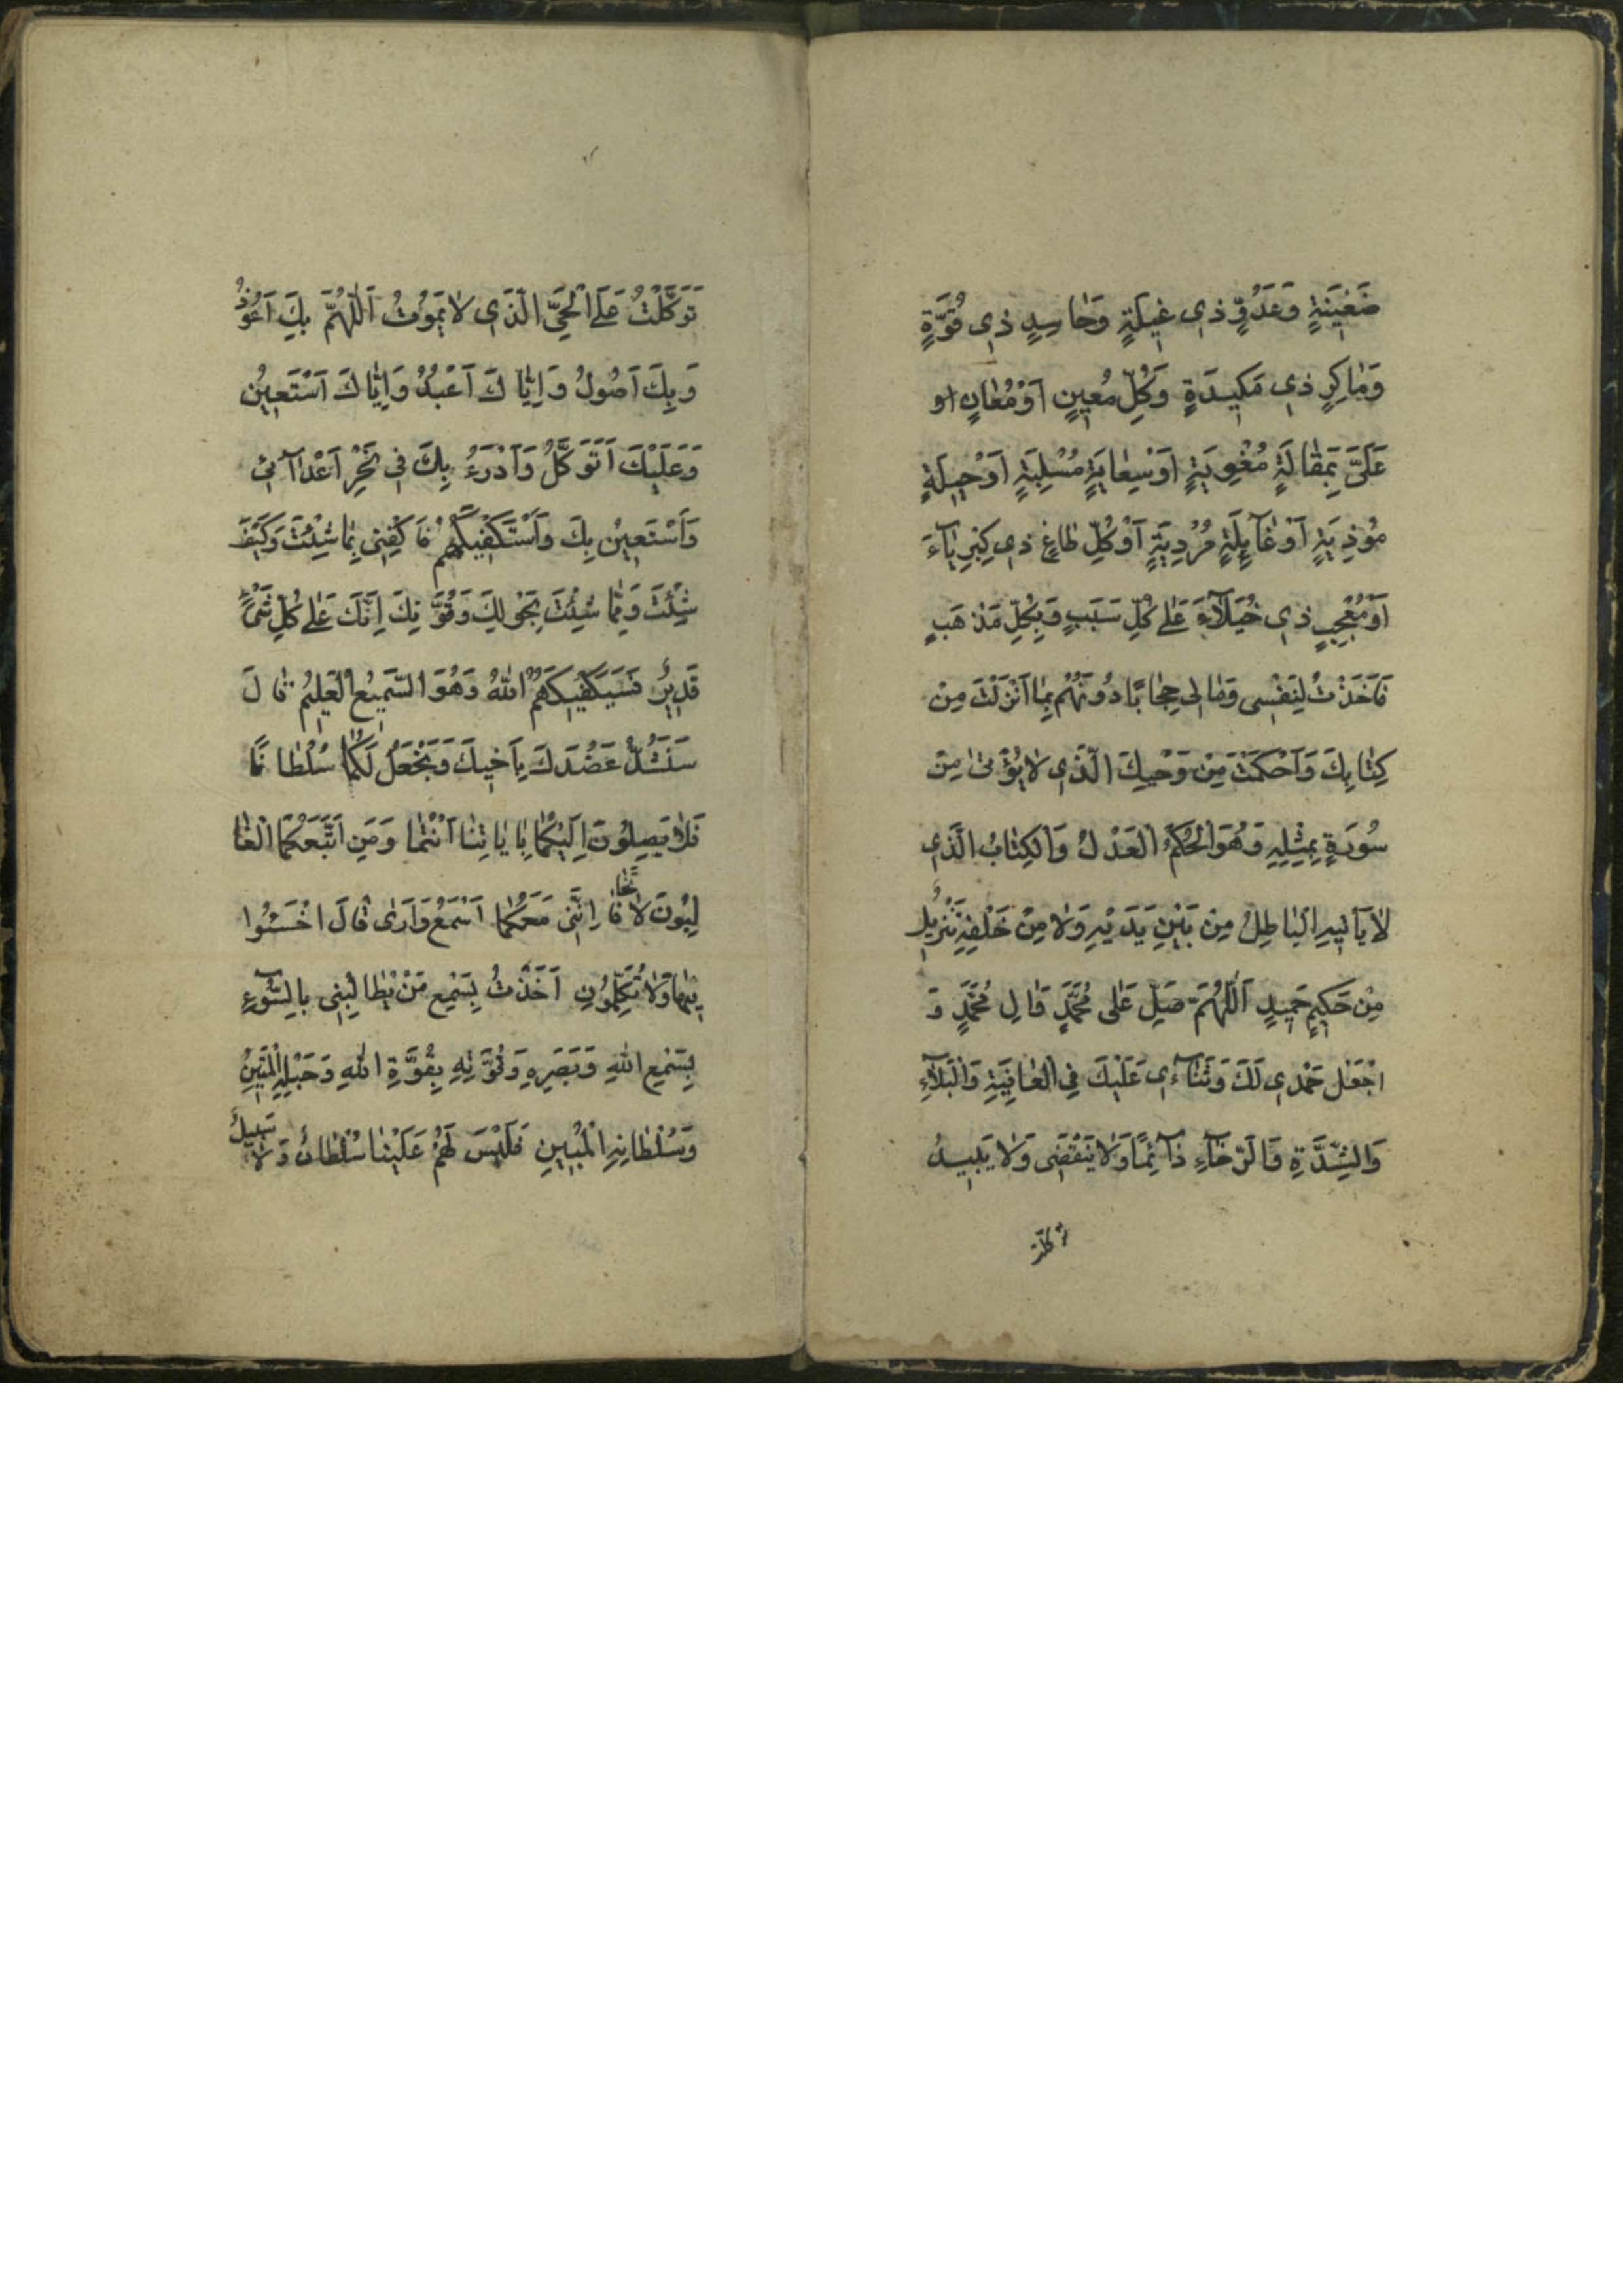 ضَغِينَةٍ وَعَدُوٍّ ذِي غِيلَةٍ وَحَاسِدٍ ذِي قُوَّةٍ
وَمَاكِرٍ ذِي مَكِيدَةٍ وَكُلِّ مُعِينٍ أَوْ مُعَانٍ او
عَلَيَّ بِمَقَالَةٍ مُغْوِيَةٍ أَوْ سِعَايَةٍ مُسْلِبَةٍ أَوْ حِيلَةٍ
مُؤْذِيَةٍ أَوْ غَآئِلَةٍ مُرْدِيَةٍ أَوْ كُلِّ طَاغٍ ذِي كِبْرِيَآءَ
أَوْ مُعْجِبٍ ذِي خُيَلَآءَ عَلٰى كُلِّ سَبَبٍ وَبِكُلِّ مَذْهَبٍ
فَاَخَذْتُ لِنَفْسِى وَمَالِى حِجَابًا دُونَهُمْ بِمَا اَنْزَلْتَ مِنْ
كِتَابِكَ وَاَحْكَمْتَ مِنْ وَحْيِكَ الَّذِى لَا يُؤْتٰى مِنْ
سُورَةٍ بِمِثْلِهِ وَهُوَ الْحَكَمُ الْعَدْلُ وَالْكِتَابُ الَّذِى
لَا يَأْتِيهِ الْبَاطِلُ مِنْ بَيْنِ يَدَيْهِ وَلَا مِنْ خَلْفِهِ تَنْزِيلٌ
مِنْ حَكِيمٍ حَمِيدٍ اَللّٰهُمَّ صَلِّ عَلٰى مُحَمَّدٍ وَالِ مُحَمَّدٍ وَ
اجْعَلْ حَمْدِى لَكَ وَثَنَآءِى عَلَيْكَ فِى الْعَافِيَةِ وَالْبَلَآءِ
وَالشِّدَّةِ وَالرَّخَآءِ دَآئِمًا وَلَا يَنْقَضِى وَلَا يَبِيدُ
توكلت
تَوَكَّلْتُ عَلَى الْحَيِّ الَّذِى لَا يَمُوتُ اَللّٰهُمَّ بِكَ اَعُوذُ
وَبِكَ اَصُولُ وَاِيَّاكَ اَعْبُدُ وَاِيَّاكَ اَسْتَعِينُ
وَعَلَيْكَ اَتَوَكَّلُ وَاَدْرَءُ بِكَ فِى نَحْرِ اَعْدَآئِى
وَاَسْتَعِينُ بِكَ وَاَسْتَكْفِيكَهُمْ فَاكْفِنِى بِمَا شِئْتَ وَكَيْفَ
شِئْتَ وَمِمَّا شِئْتَ بِحَوْلِكَ وَقُوَّتِكَ اِنَّكَ عَلٰى كُلِّ شَىْءٍ
قَدِيرٌ فَسَيَكْفِيكَهُمُ اللّٰهُ وَهُوَ السَّمِيعُ الْعَلِيمُ قَالَ
سَنَشُدُّ عَضُدَكَ بِاَخِيكَ وَنَجْعَلُ لَكُمَا سُلْطَانًا
فَلَا يَصِلُونَ اِلَيْكُمَا بِاٰيَاتِنَا اَنْتُمَا وَمَنِ اتَّبَعَكُمَا الْغَا
لِبُونَ لَا تَخَافَا اِنَّنِى مَعَكُمَا اَسْمَعُ وَاَرٰى قَالَ اخْسَئُوا
فِيهَا وَلَا تُكَلِّمُونِ اَخَذْتُ بِسَمْعِ مَنْ يُطَالِبُنِى بِالسُّوءِ
بِسَمْعِ اللّٰهِ وَبَصَرِهِ وَقُوَّتِهِ بِقُوَّةِ اللّٰهِ وَحَبْلِهِ الْمَتِينِ
وَسُلْطَانِهِ الْمُبِينِ فَلَيْسَ لَهُمْ عَلَيْنَا سُلْطَانٌ وَلَا سَبِيلٌ